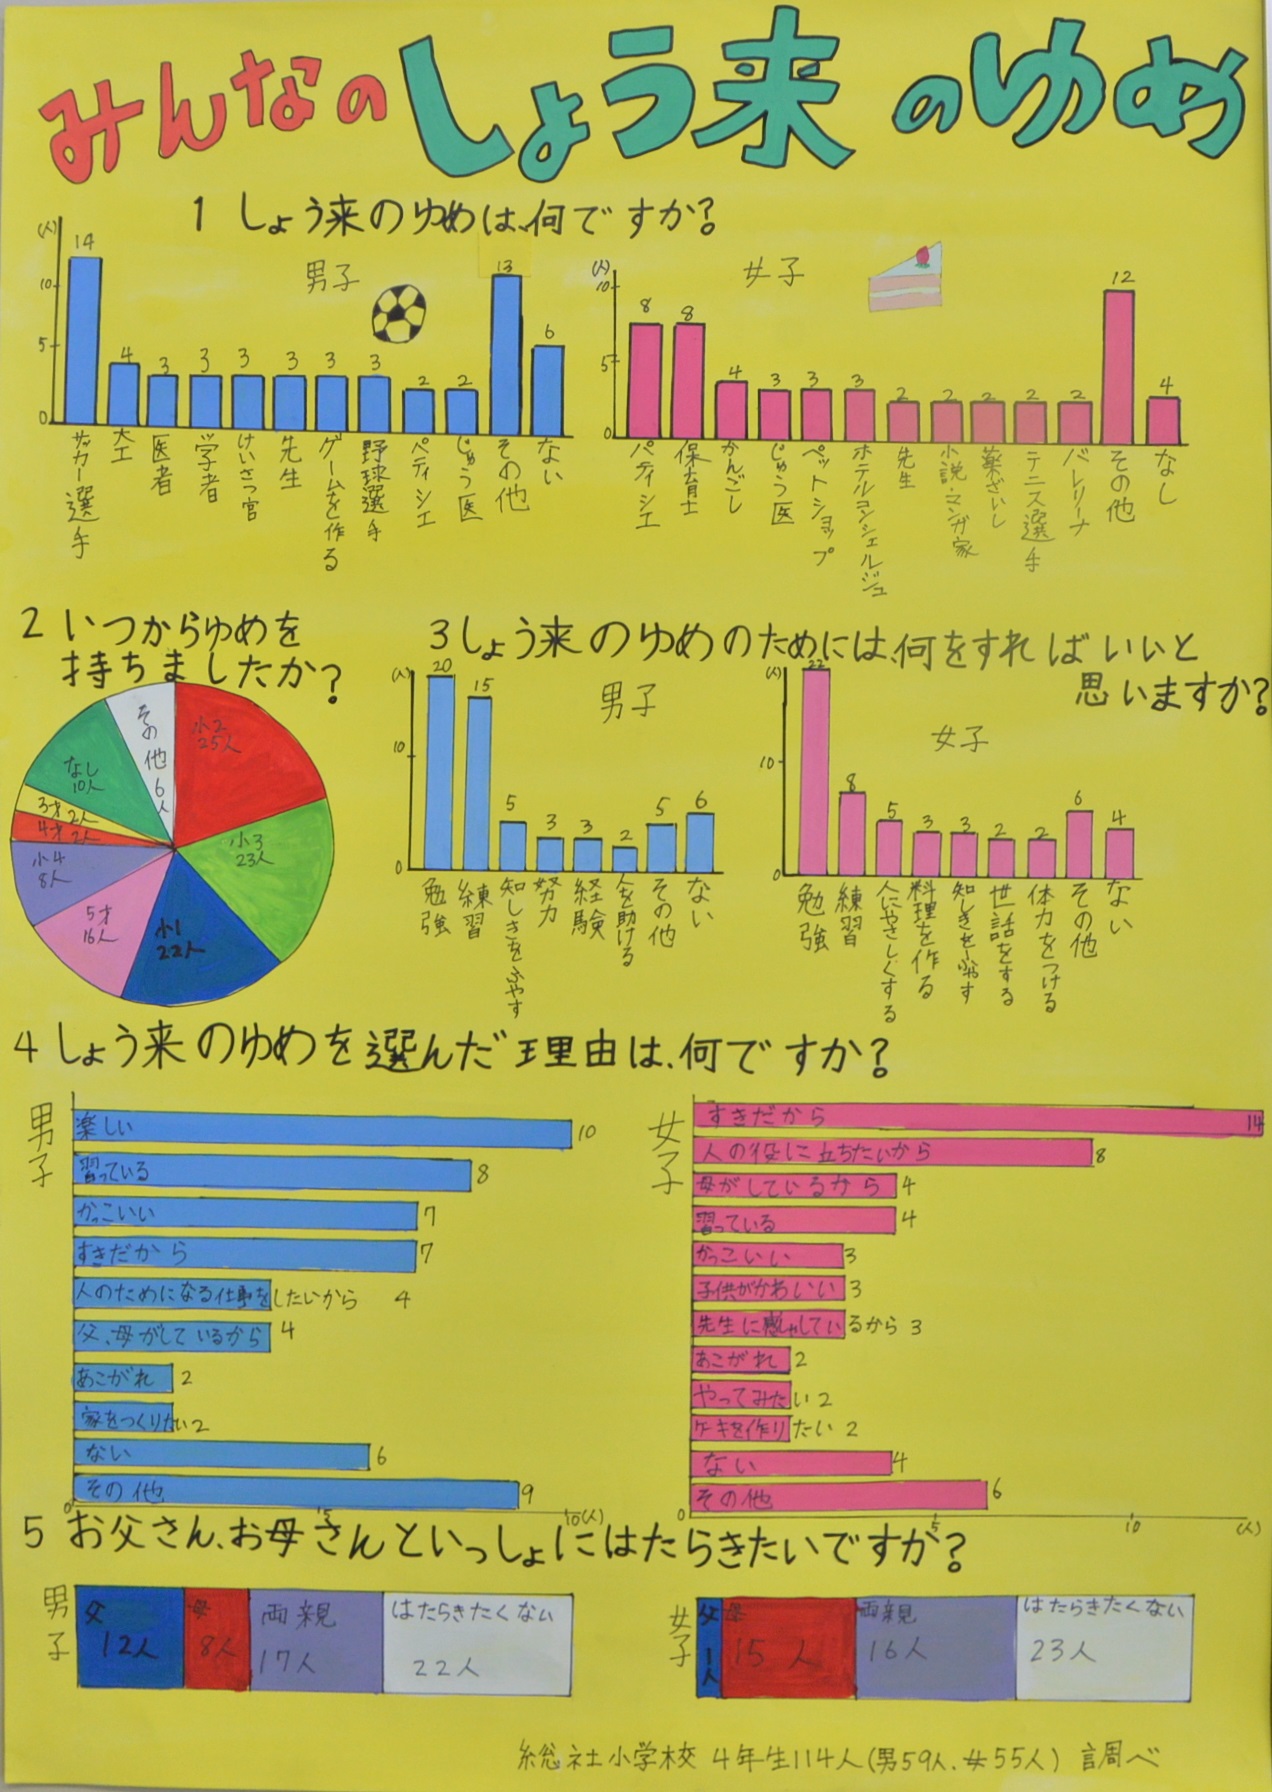 みんなのしょう来のゆめ
1 しょう来のゆめは、何ですか?
男子
(人)
10
5
0
14
4
3
3
3
3
3
3
2
2
13
6
サッカー選手
大工
医者
学者
けいさつ官
先生
ゲームを作る
野球選手
パティシエ
じゅう医
その他
ない
女子
(人)
10
5
0
8
8
4
3
3
3
2
2
2
2
2
12
4
パティシエ
保育士
かんごし
じゅう医
ペットショップ
ホテルコンシェルジュ
先生
小説・マンガ家
薬ざいし
テニス選手
バレリーナ
その他
なし
2 いつからゆめを
持ちましたか?
小2
25人
小3
23人
小1
22人
5才
16人
小4
8人
4才 2人
3才 2人
なし
10人
その他
6人
3 しょう来のゆめのためには、何をすればいいと
思いますか?
男子
(人)
10
0
20
15
5
3
3
2
5
6
勉強
練習
知しきをふやす
努力
経験
人を助ける
その他
ない
女子
(人)
10
0
22
8
5
3
3
2
2
6
4
勉強
練習
人にやさしくする
料理を作る
知しきをふやす
世話をする
体力をつける
その他
ない
4 しょう来のゆめを選んだ理由は、何ですか?
男子
楽しい 10
習っている 8
かっこいい 7
すきだから 7
人のためになる仕事をしたいから 4
父、母がしているから 4
あこがれ 2
家をつくりたい 2
ない 6
その他 9
0 5 10(人)
女子
すきだから 14
人の役に立ちたいから 8
母がしているから 4
習っている 4
かっこいい 3
子供がかわいい 3
先生に感しゃしているから 3
あこがれ 2
やってみたい 2
ケーキを作りたい 2
ない 4
その他 6
0 5 10 (人)
5 お父さん、お母さんといっしょにはたらきたいですか?
男子
父 12人
母 8人
両親 17人
はたらきたくない 22人
女子
父 1人
母 15人
両親 16人
はたらきたくない 23人
総社小学校 4年生114人(男59人、女55人) 調べ